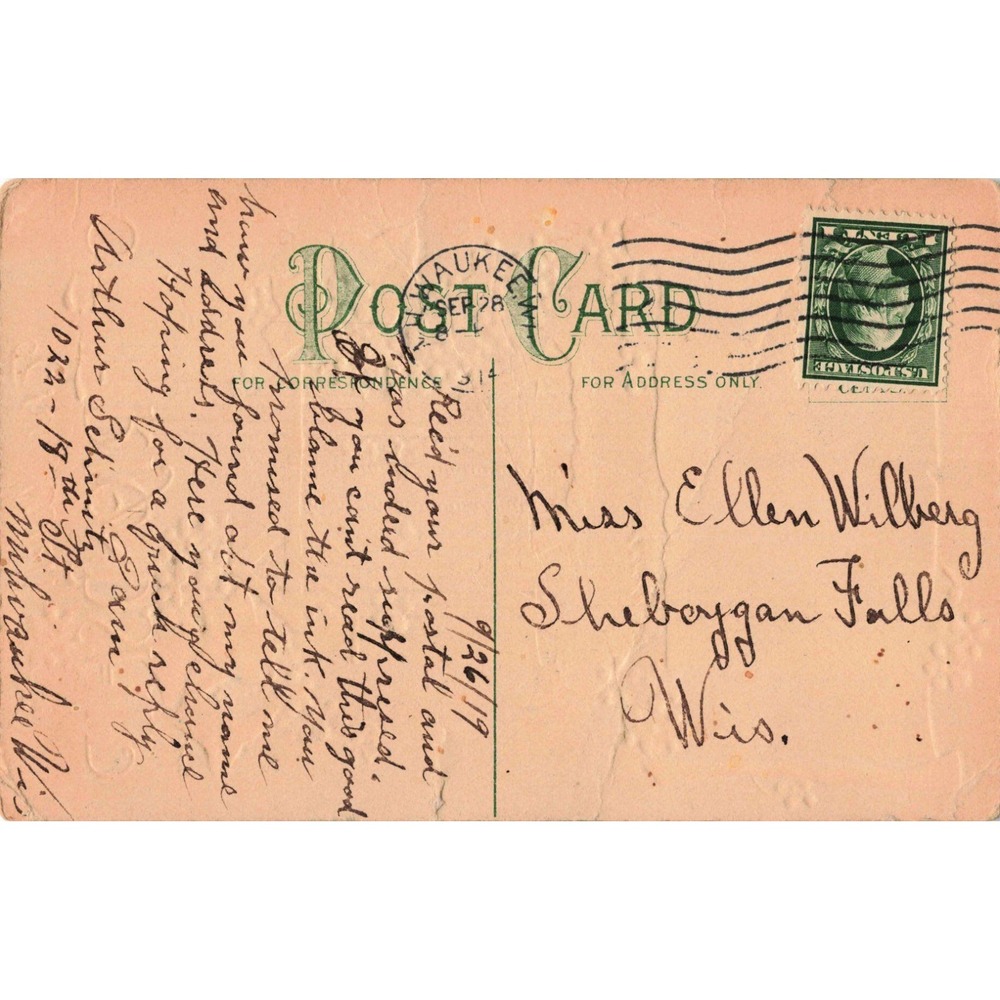 POST CARD
FOR CORRESPONDENCE
FOR ADDRESS ONLY.
MILWAUKEE, WI
SEP 28
1 CENT 1
U.S. POSTAGE
9/26/19
Rec'd your postal and
was indeed suppresed.
If you can't read this good
blame the ink. You
promised to tell me
how you found out my name
and address. Here your chance
Hoping for a quick reply
Arthur Schmitz
1022 - 18th St.
Milwaukee Wis
Miss Ellen Wilberg
Sheboygan Falls
Wis.